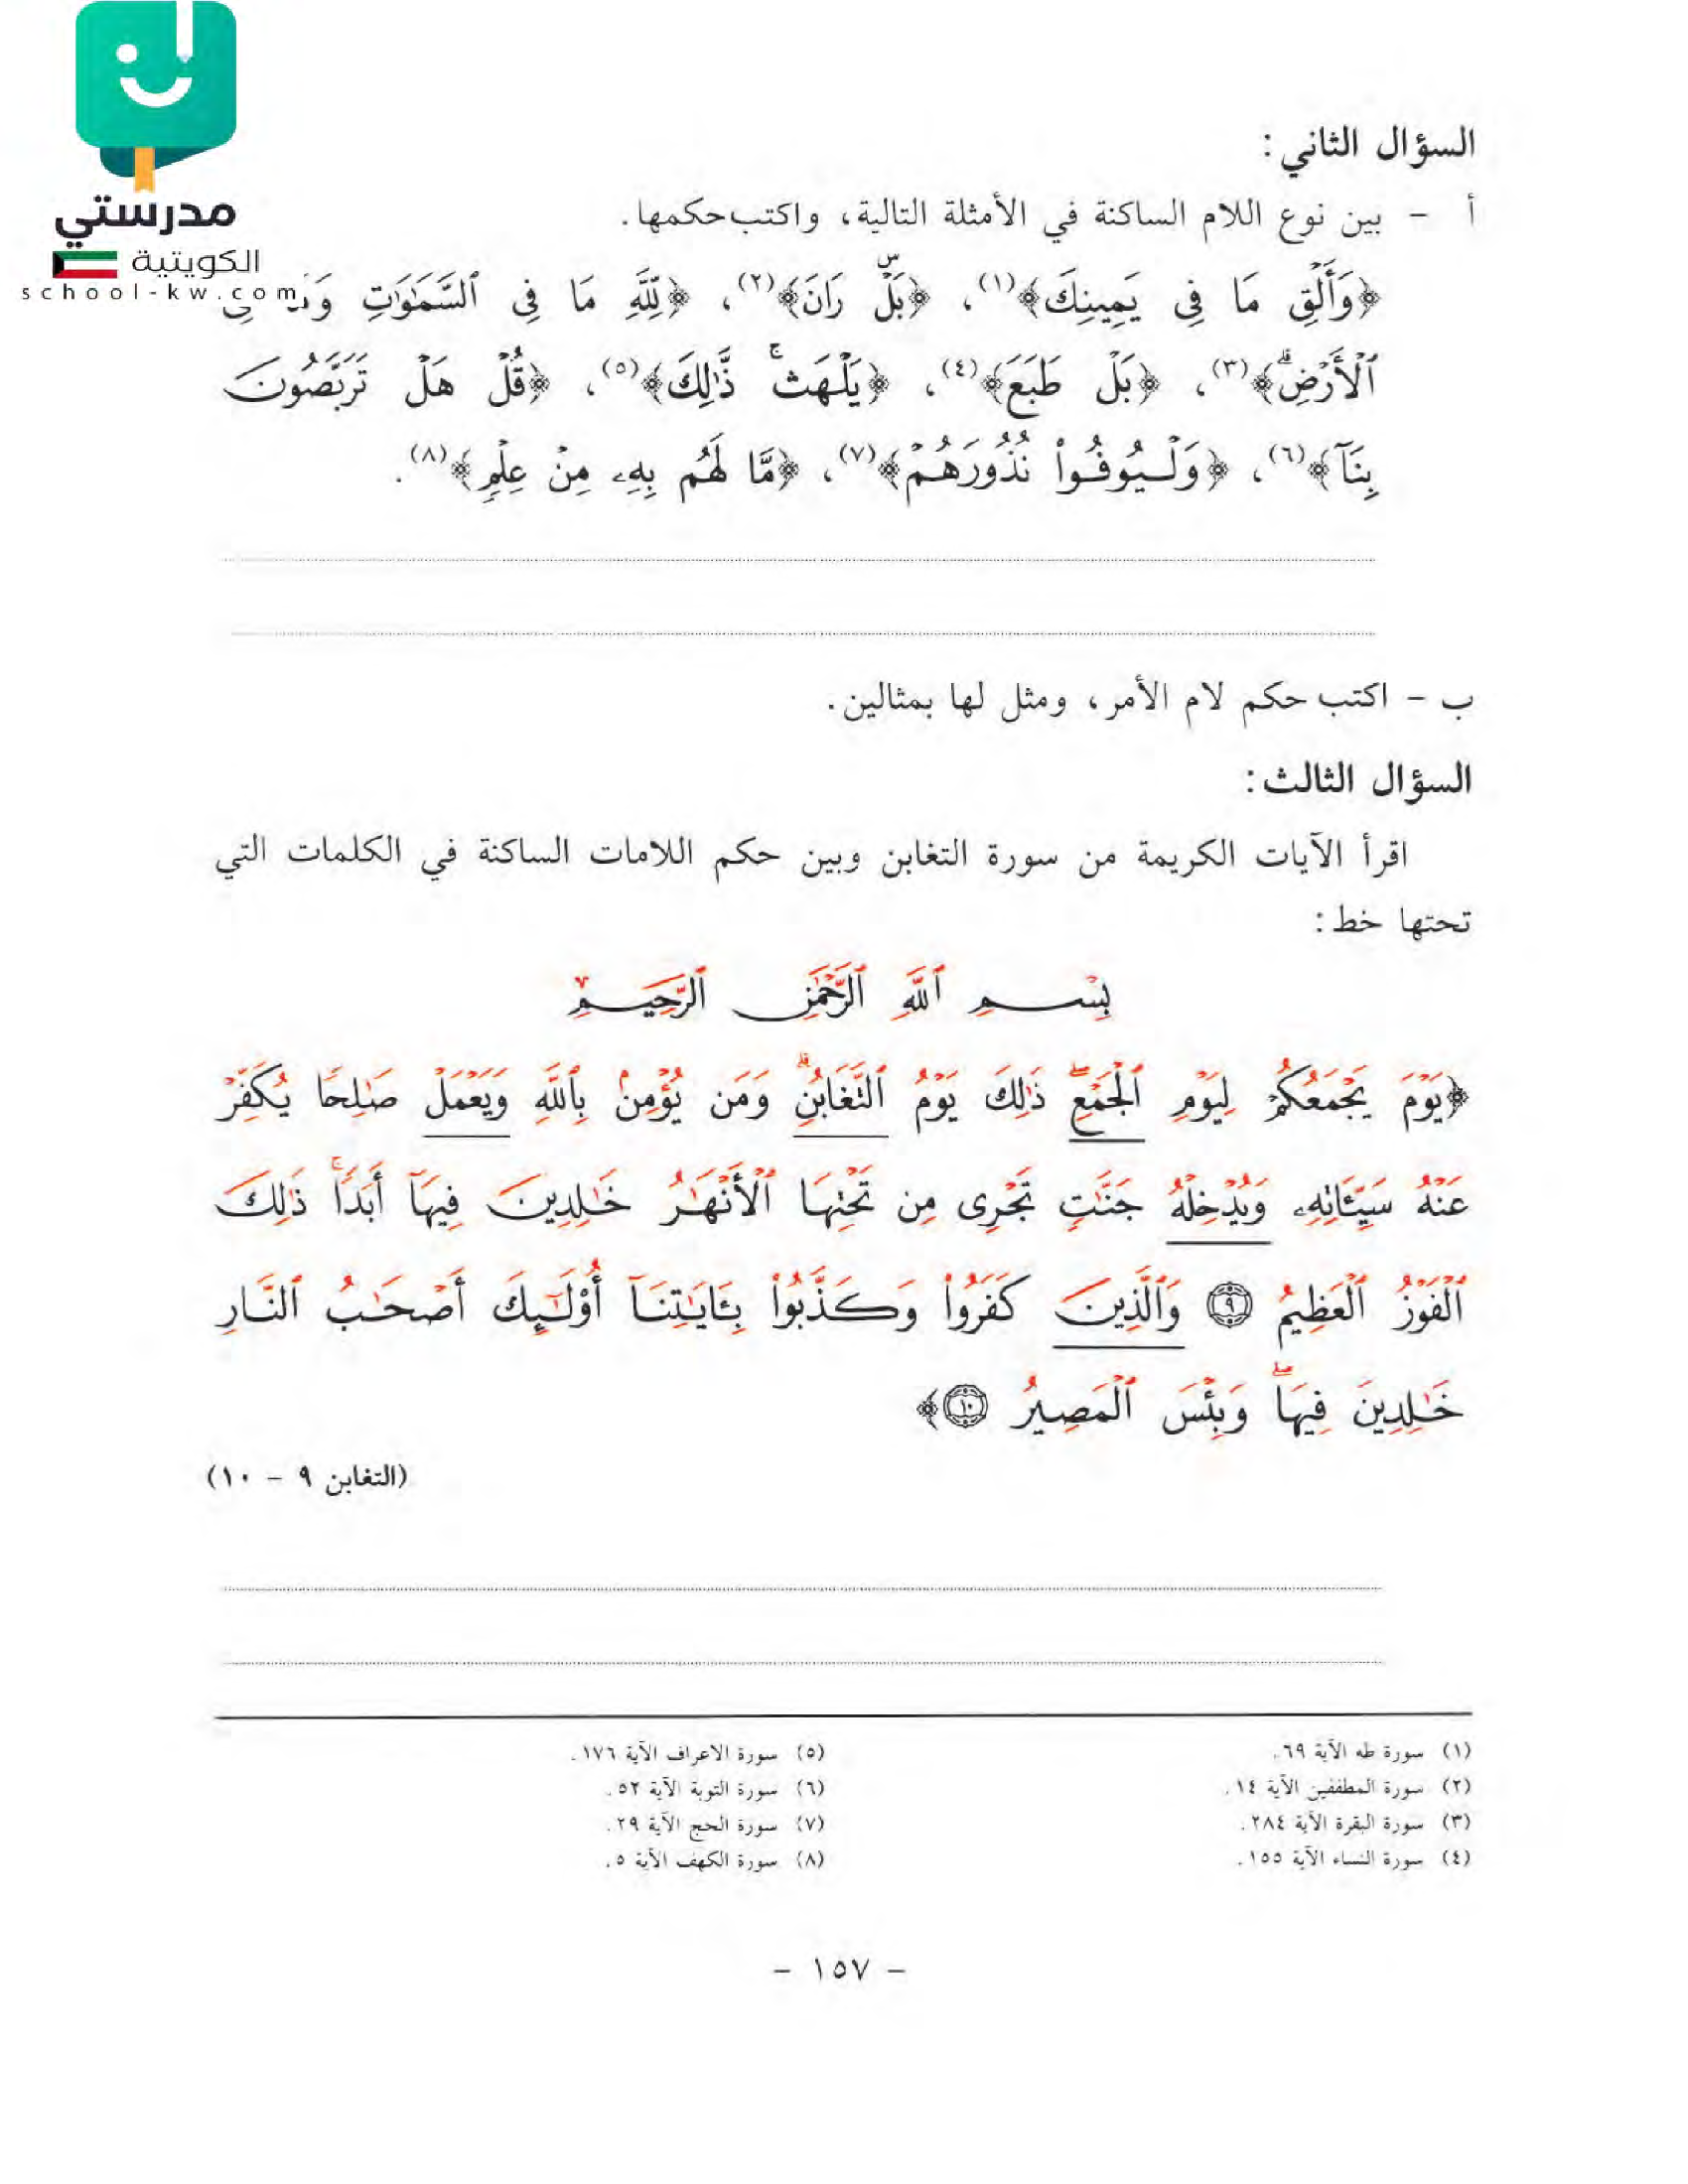 مدرستي
الكويتية
school-kw.com
السؤال الثاني:
أ - بين نوع اللام الساكنة في الأمثلة التالية، واكتب حكمها.
﴿وَأَلْقِ مَا فِي يَمِينِكَ﴾(١)، ﴿بَلْۜ رَانَ﴾(٢)، ﴿لِلَّهِ مَا فِي ٱلسَّمَٰوَٰتِ
ٱلْأَرْضِۗ﴾(٣)، ﴿بَلْ طَبَعَ﴾(٤)، ﴿يَلْهَثۚ ذَّٰلِكَ﴾(٥)، ﴿قُلْ هَلْ تَرَبَّصُونَ
بِنَآ﴾(٦)، ﴿وَلْيُوفُوا۟ نُذُورَهُمْ﴾(٧)، ﴿مَّا لَهُم بِهِۦ مِنْ عِلْمٍ﴾(٨).
ب - اكتب حكم لام الأمر، ومثل لها بمثالين.
السؤال الثالث:
اقرأ الآيات الكريمة من سورة التغابن وبين حكم اللامات الساكنة في الكلمات التي
تحتها خط:
بِسْمِ ٱللَّهِ ٱلرَّحْمَٰنِ ٱلرَّحِيمِ
﴿يَوْمَ يَجْمَعُكُمْ لِيَوْمِ ٱلْجَمْعِۖ ذَٰلِكَ يَوْمُ ٱلتَّغَابُنِۗ وَمَن يُؤْمِنۢ بِٱللَّهِ وَيَعْمَلْ صَٰلِحًا يُكَفِّرْ
عَنْهُ سَيِّـَٔاتِهِۦ وَيُدْخِلْهُ جَنَّٰتٍ تَجْرِى مِن تَحْتِهَا ٱلْأَنْهَٰرُ خَٰلِدِينَ فِيهَآ أَبَدًاۚ ذَٰلِكَ
ٱلْفَوْزُ ٱلْعَظِيمُ ٩ وَٱلَّذِينَ كَفَرُوا۟ وَكَذَّبُوا۟ بِـَٔايَٰتِنَآ أُو۟لَٰٓئِكَ أَصْحَٰبُ ٱلنَّارِ
خَٰلِدِينَ فِيهَاۖ وَبِئْسَ ٱلْمَصِيرُ ١٠﴾
(التغابن ٩ - ١٠)
(١) سورة طه الآية ٦٩.
(٢) سورة المطففين الآية ١٤.
(٣) سورة البقرة الآية ٢٨٤.
(٤) سورة النساء الآية ١٥٥.
(٥) سورة الاعراف الآية ١٧٦.
(٦) سورة التوبة الآية ٥٢.
(٧) سورة الحج الآية ٢٩.
(٨) سورة الكهف الآية ٥.
- ١٥٧ -